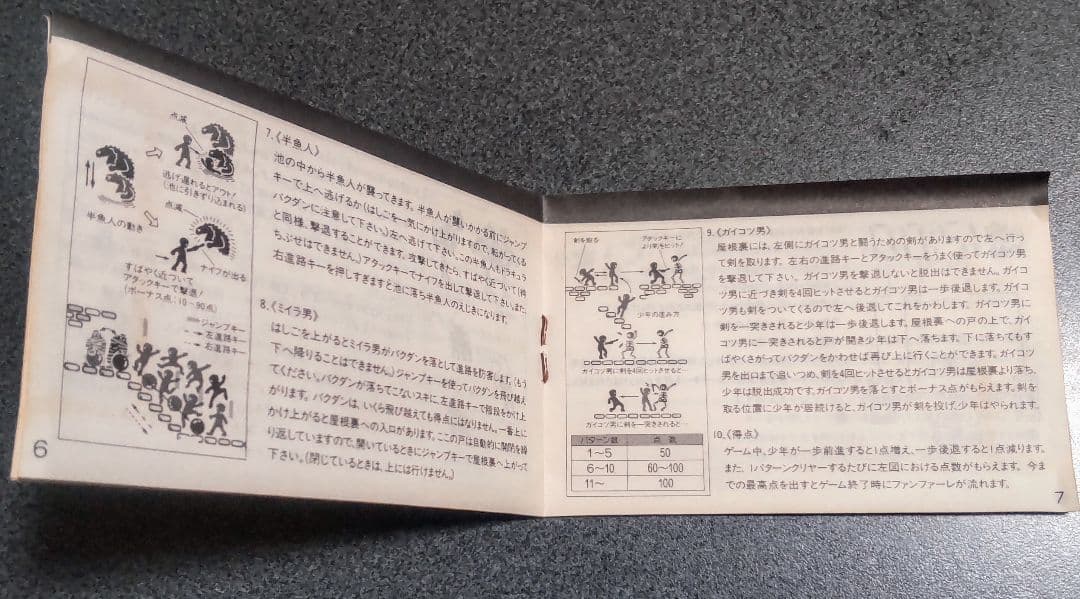 点滅
逃げ遅れるとアウト!
(池に引きずり込まれる)
点滅
半魚人の動き
ナイフが出る
すばやく近づいて
アタックキーで撃退!
(ボーナス点:10~90点)
ジャンプキー
左進路キー
右進路キー
6
7.《半魚人》
池の中から半魚人が襲ってきます。半魚人が襲いかかる前にジャンプ
キーで上へ逃げるか(はしごを一気にかけ上がりますので、転がってくる
バクダンに注意して下さい。)左へ逃げて下さい。この半魚人もドラキュラ
と同様、撃退することができます。攻撃してきたら、すばやく近づいて(待
ちぶせはできません。)アタックキーでナイフを出して撃退して下さい。また、
右進路キーを押しすぎますと池に落ち半魚人のえじきになります。
8.《ミイラ男》
はしごを上がるとミイラ男がバクダンを落として進路を妨害します。(もう
下へ降りることはできません。)ジャンプキーを使ってバクダンを飛び越え
てください。バクダンが落ちてこないスキに、左進路キーで階段をかけ上
がります。バクダンは、いくら飛び越えても得点にはなりません。一番上に
かけ上がると屋根裏への入口があります。ここの戸は自動的に開閉を繰
り返していますので、開いているときにジャンプキーで屋根裏へ上がって
下さい。(閉じているときは、上には行けません。)
剣を取る
アタックキーに
より剣をヒット!
少年の進み方
ガイコツ男に剣を4回ヒットさせると…
ガイコツ男に剣を一突きされると…
パターン数 点数
1~5 50
6~10 60~100
11~ 100
9.《ガイコツ男》
屋根裏には、左側にガイコツ男と闘うための剣がありますので左へ行っ
て剣を取ります。左右の進路キーとアタックキーをうまく使ってガイコツ男
を撃退して下さい。ガイコツ男を撃退しないと脱出はできません。ガイコ
ツ男に近づき剣を4回ヒットさせるとガイコツ男は一歩後退します。ガイコ
ツ男も剣をついてくるので左へ後退してこれをかわします。ガイコツ男に
剣を一突きされると少年は一歩後退します。屋根裏への戸の上で、ガイ
コツ男に一突きされると戸が開き少年は下へ落ちます。下に落ちてもす
ばやくさがってバクダンをかわせば再び上に行くことができます。ガイコツ
男を出口まで追いつめ、剣を4回ヒットさせるとガイコツ男は屋根裏より落ち、
少年は脱出成功です。ガイコツ男を落とすとボーナス点がもらえます。剣を
取る位置に少年が居続けると、ガイコツ男が剣を投げ、少年はやられます。
10.《得点》
ゲーム中、少年が一歩前進すると1点増え、一歩後退すると1点減ります。
また、1パターンクリヤーするたびに左図における点数がもらえます。今ま
での最高点を出すとゲーム終了時にファンファーレが流れます。
7